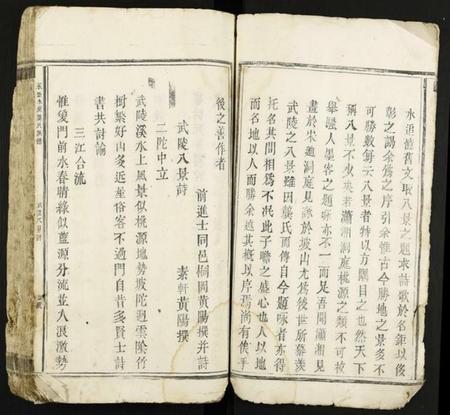 水派舊文取八景之題來詩歌於名鉅以後
彰之謁余爲之序引余惟古今勝地之景多不
可勝數每云八景者特以方隅目之也然天下
稱八景不少矣若瀟湘洞庭桃源之類不可枚
舉騷人墨客之題咏亦不一而足吾聞瀟湘見
畫於宋迪洞庭見詠於坡山尤爲後世所慕羨
武陵之八景雖因龔氏而傳自今題咏者亦得
托名其間相爲不泯此子瞻之盛心也人以地
而名地以人而勝余姑其概以序焉尚有俟乎
後之善作者
前進士同邑桐岡黃陽撰并詩
武陵八景詩
素軒黃陽撰
二陀中立
武陵溪水上風景似桃源地勢坡陀迥雲陰竹
樹繁好山多近並俗客不過門自昔多賢士詩
書共討論
三江合流
惟愛門前水春晴綠似藍源分流並入浪激勢